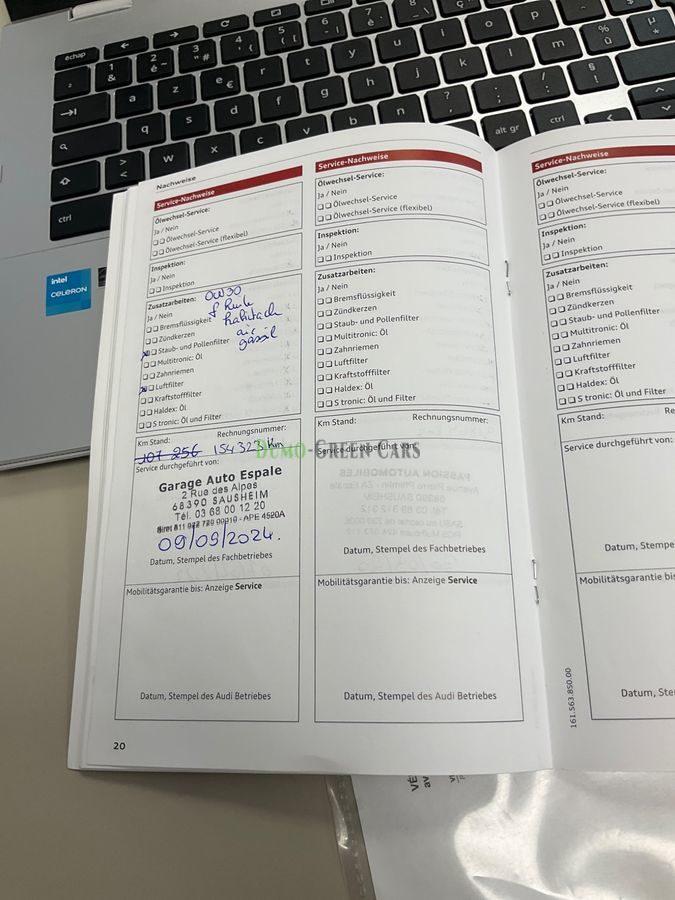 échap
intel
CELERON
ctrl
alt gr
ctrl
Nachweise
Service-Nachweise
Ölwechsel-Service:
Ja / Nein
Ölwechsel-Service
Ölwechsel-Service (flexibel)
Inspektion:
Ja / Nein
Inspektion
Zusatzarbeiten: 0W30
Ja / Nein
Bremsflüssigkeit
Zündkerzen
Staub- und Pollenfilter
Multitronic: Öl
Zahnriemen
Luftfilter
Kraftstofffilter
Haldex: Öl
S tronic: Öl und Filter
Km Stand: Rechnungsnummer:
154 323 Km
Service durchgeführt von:
Garage Auto Espale
2 Rue des Alpes
68390 SAUSHEIM
Tél. 03 68 00 12 20
APE 4520A
09/09/2024.
Datum, Stempel des Fachbetriebes
Mobilitätsgarantie bis: Anzeige Service
Datum, Stempel des Audi Betriebes
20
Service-Nachweise
Ölwechsel-Service:
Ja / Nein
Ölwechsel-Service
Ölwechsel-Service (flexibel)
Inspektion:
Ja / Nein
Inspektion
Zusatzarbeiten:
Ja / Nein
Bremsflüssigkeit
Zündkerzen
Staub- und Pollenfilter
Multitronic: Öl
Zahnriemen
Luftfilter
Kraftstofffilter
Haldex: Öl
S tronic: Öl und Filter
Km Stand: Rechnungsnummer:
Service durchgeführt von:
Datum, Stempel des Fachbetriebes
Mobilitätsgarantie bis: Anzeige Service
Datum, Stempel des Audi Betriebes
Service-Nachweise
Ölwechsel-Service:
Ja / Nein
Ölwechsel-Service
Ölwechsel-Service (flexibel)
Inspektion:
Ja / Nein
Inspektion
Zusatzarbeiten:
Ja / Nein
Bremsflüssigkeit
Zündkerzen
Staub- und Pollenfilter
Multitronic: Öl
Zahnriemen
Luftfilter
Kraftstofffilter
Haldex: Öl
S tronic: Öl und Filter
Km Stand: Re
Service durchgeführt von:
Datum, Stempe
Mobilitätsgarantie bis
Datum, Ste
161.563.850.00
Dumo-Green Cars